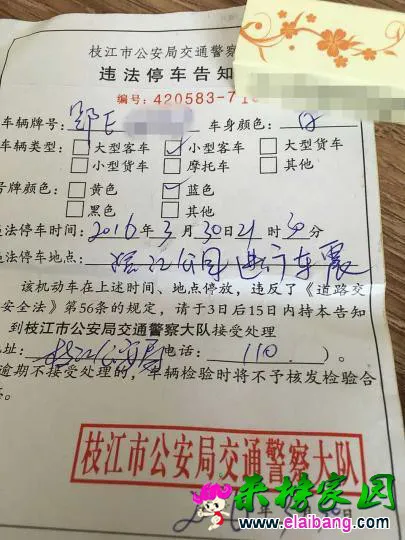 枝江市公安局交通警察
违法停车告知
编号：420583-71
车辆牌号：鄂E 车身颜色：白
车辆类型：□大型客车 ☑小型客车 □大型货车
□小型货车 □摩托车 □其他
号牌颜色：□黄色 ☑蓝色
□黑色 □其他
违法停车时间：2016年3月30日21时30分
违法停车地点：滨江公园进行车震
该机动车在上述时间、地点停放，违反了《道路交
安全法》第56条的规定，请于3日后15日内持本告知
到枝江市公安局交通警察大队接受处理
地址：枝江公安局 电话：110）。
逾期不接受处理的，车辆检验时将不予核发检验合
枝江市公安局交通警察大队
年 日
www.elaibang.com